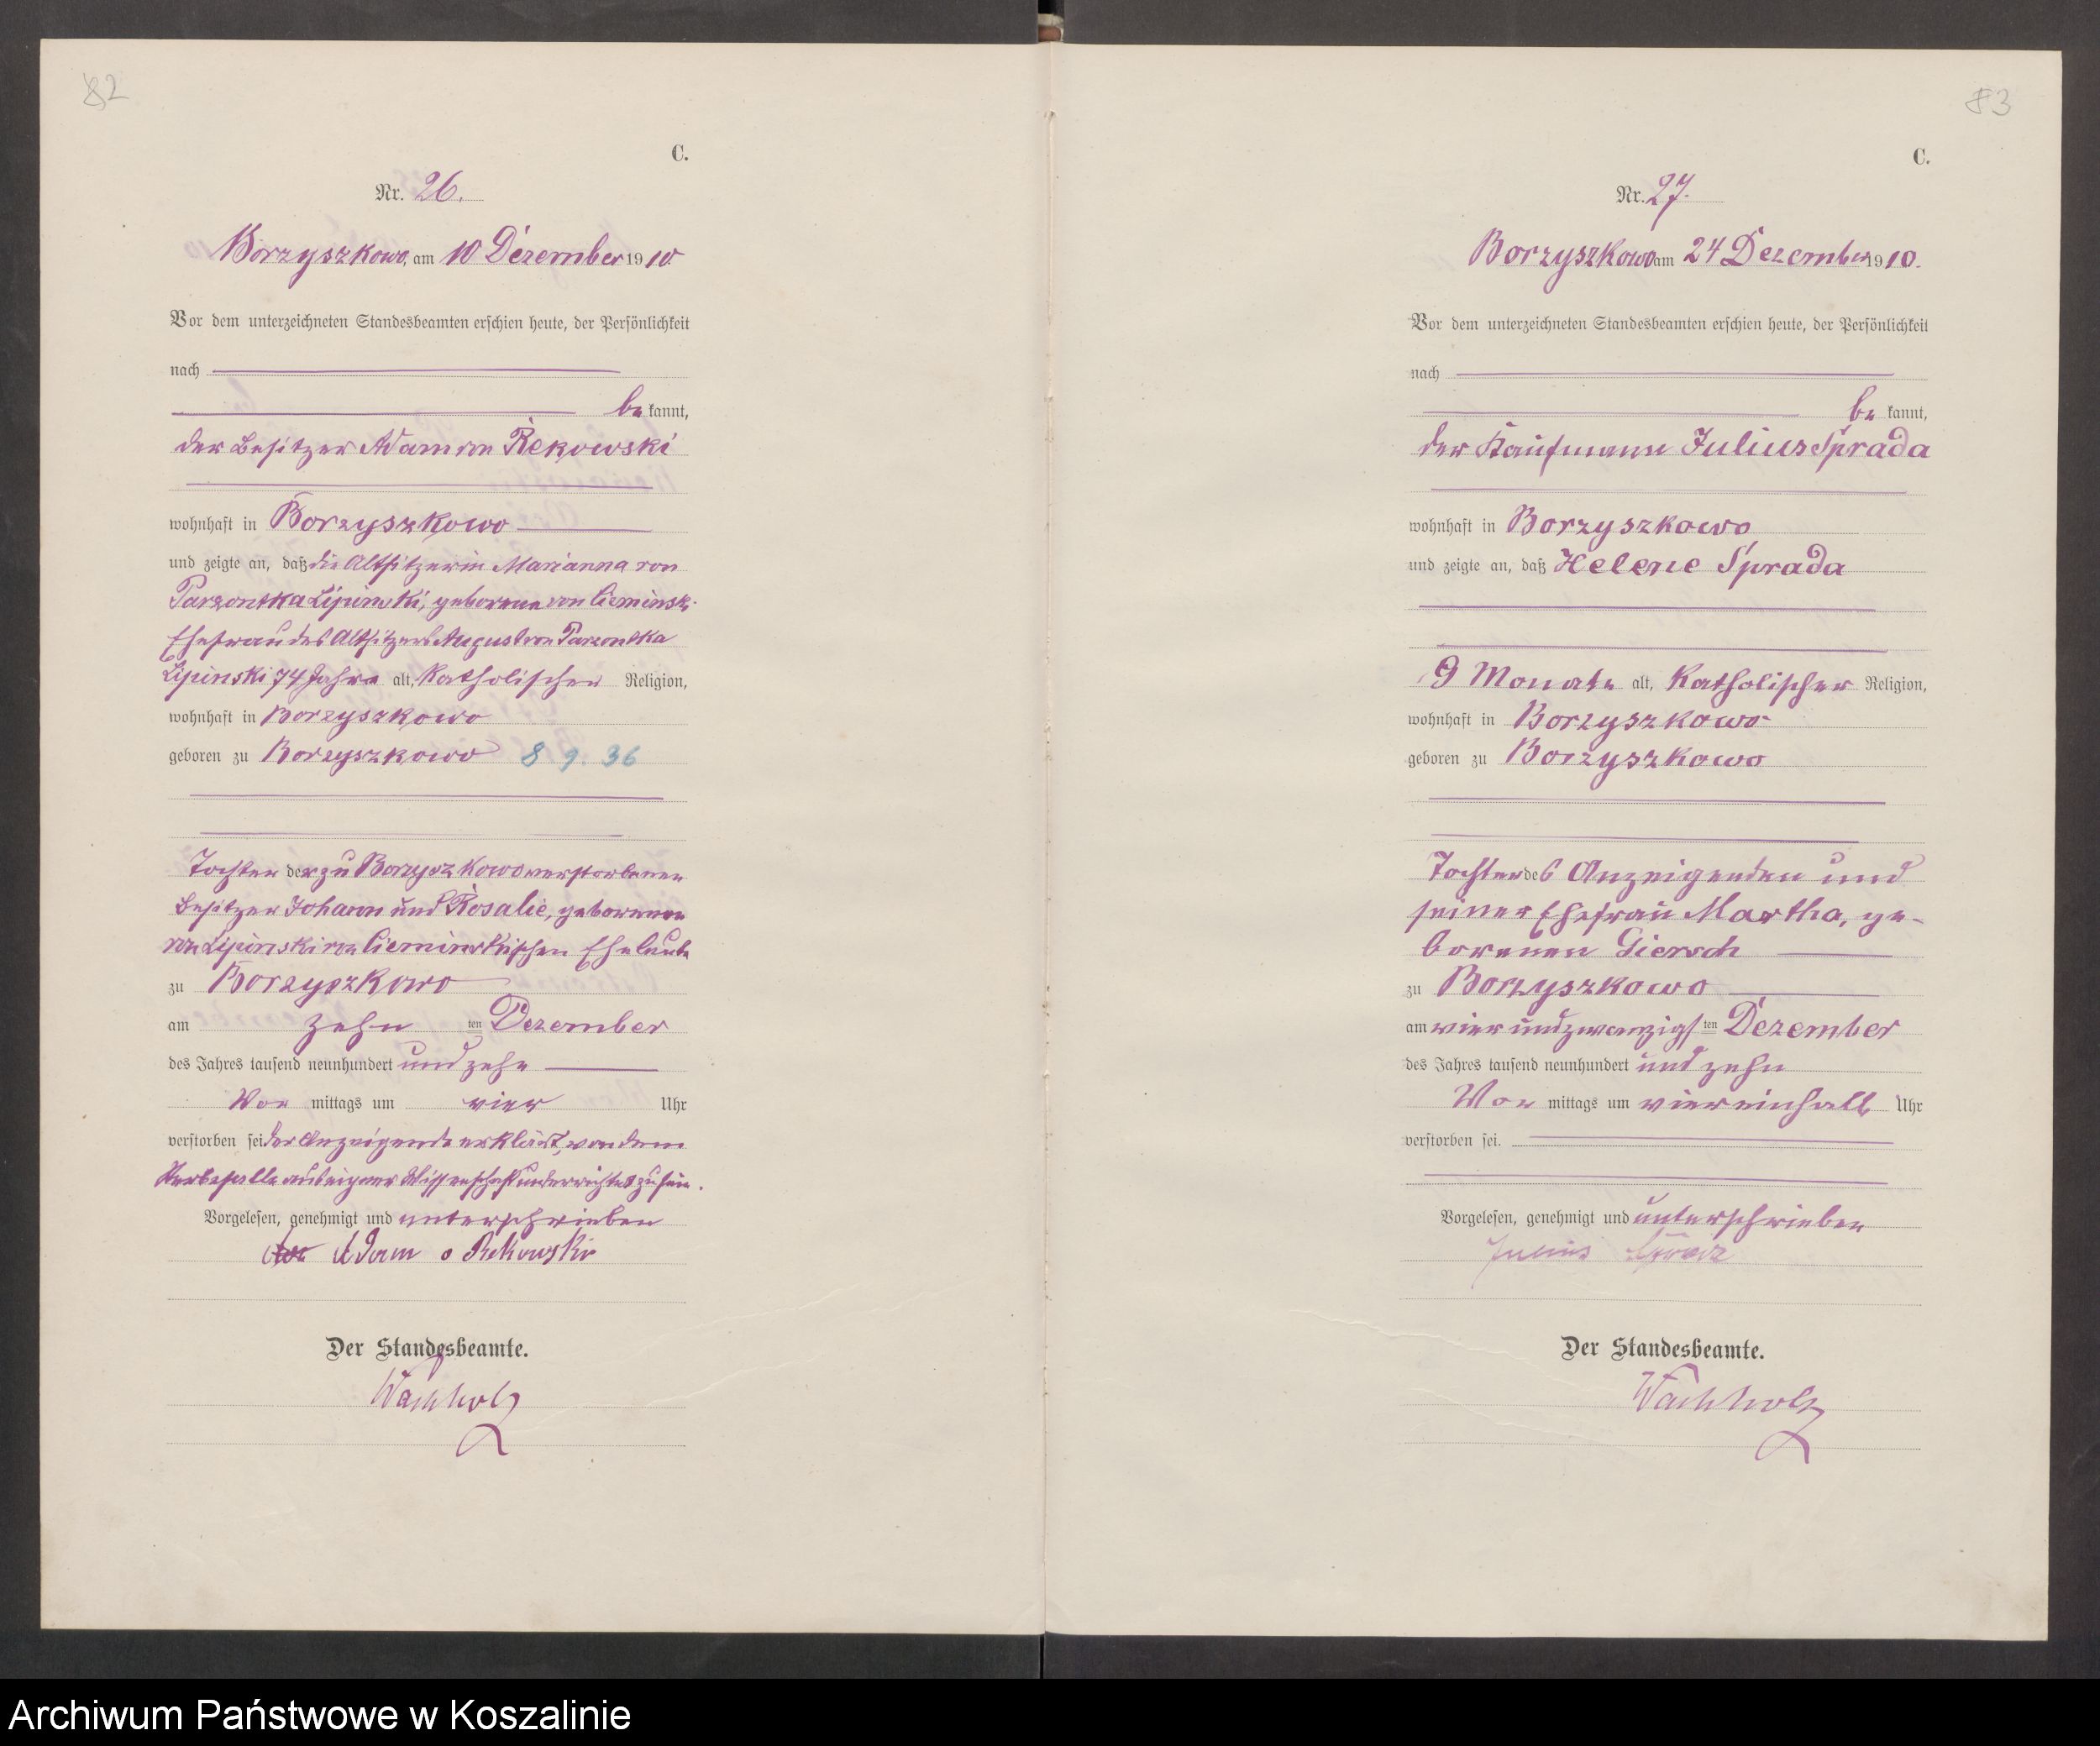 82
C.
Nr. 26.
Borzyszkowo, am 10 Dezember 1910
Vor dem unterzeichneten Standesbeamten erschien heute, der Persönlichkeit
nach
be kannt,
der Besitzer Adam von Rekowski
wohnhaft in Borzyszkowo
und zeigte an, daß die Altsitzerin Marianna von
Parzontka Lipinski, geborene von Cieminski
Ehefrau des Altsitzers August von Parzontka
Lipinski 74 Jahre alt, katholischer Religion,
wohnhaft in Borzyszkowo
geboren zu Borzyszkowo 8 9. 36
Tochter der zu Borzyszkowo verstorbenen
Besitzer Johann und Rosalie, geborenen
von Lipinski von Cieminskischen Eheleute
zu Borzyszkowo
am zehn ten Dezember
des Jahres tausend neunhundert und zehn
Vor mittags um vier Uhr
verstorben sei der Anzeigende erklärt, von dem
Sterbefalle aus eigener Wissenschaft unterrichtet zu sein.
Vorgelesen, genehmigt und unterschrieben
Adam v Rekowski
Der Standesbeamte.
Wachholz
83
C.
Nr. 27.
Borzyszkowo am 24 Dezember 1910.
Vor dem unterzeichneten Standesbeamten erschien heute, der Persönlichkeit
nach
be kannt,
der Kaufmann Julius Sprada
wohnhaft in Borzyszkowo
und zeigte an, daß Helene Sprada
9 Monate alt, katholischer Religion,
wohnhaft in Borzyszkowo
geboren zu Borzyszkowo
Tochter des Anzeigenden und
seiner Ehefrau Martha, ge-
borenen Giersch
zu Borzyszkowo
am vierundzwanzigs ten Dezember
des Jahres tausend neunhundert und zehn
Vor mittags um viereinhalb Uhr
verstorben sei.
Vorgelesen, genehmigt und unterschrieben
Julius
Der Standesbeamte.
Wachholz
Archiwum Państwowe w Koszalinie